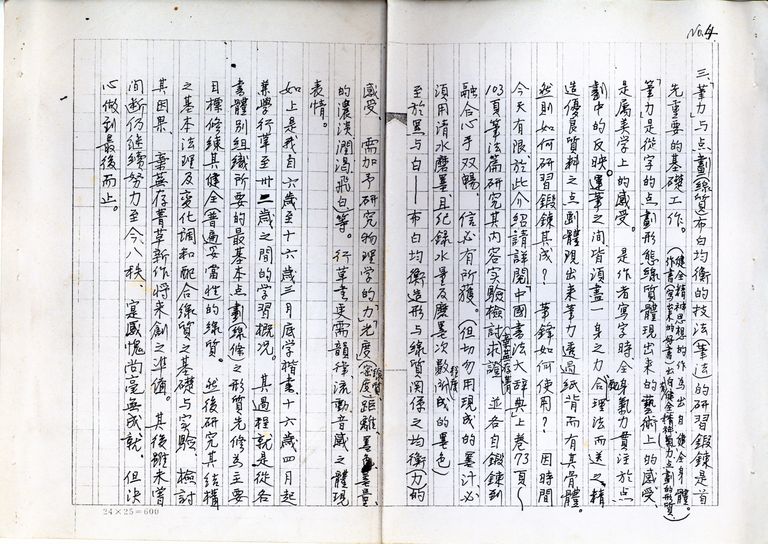 No.4
三、「筆力」与点劃(線質)布白均衡的技法(筆法)的研習鍛鍊是首
先重要的基礎工作。
(健全精神思想的作為出自健全身體。
「筆力」是從字的点劃形態線質體現出來的藝術上的感受、
是属美学上的感受。是作者寫字時全身氣力貫注於点
劃中的反映。運筆之间皆須盡一身之力合理法而送之精
造優良質料之点劃體現出來筆力透過紙背而有真骨體。
然則如何研習鍛鍊其成?筆鋒如何使用?因時間
今天有限於此介紹請詳閱中國書法大辞典上卷73頁(
103頁筆法篇研究其內容实驗檢討求證 並各自鍛鍊到
融合心手双暢、信必有所獲(但切勿用現成的墨汁必
須用清水磨墨且纪錄水量及磨墨次數所成的墨色)
至於黑与白——布白均衡造形与線質関係之均衡(力)的
感受 需加予研究物理学的「力」光度(密度)距離、墨量
的濃淡潤渴飛白等。行草書更需韻律流動音感之體現
表情。
如上是我自六歲至十六歲三月底学楷書、十六歲四月起
兼學行草至卅二歲之間的学習概况。其過程就是從各
書體別組織所要的最基本点劃線條之形質先修為主要
目標修練其健全(普遍妥當性的線質。然後研究其結構
之基本法理及变化調和配合線質之基礎与实驗、檢討
其因果、棄蕪存菁革新作將來創之準值。其後雖未嘗
间断仍继續努力至今八秩、寔感愧尚毫無成就、但決
心做到最後而止。
24×25=600